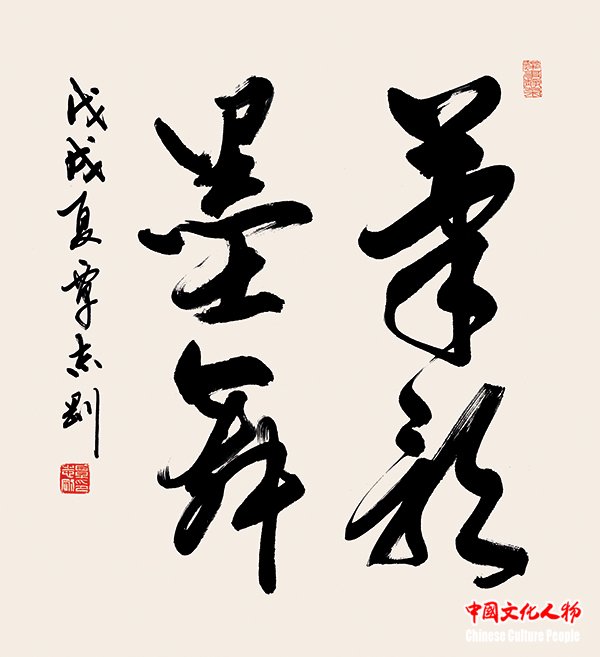 筆歌
墨舞
戊戌夏覃志剛
中國文化人物
Chinese Culture People